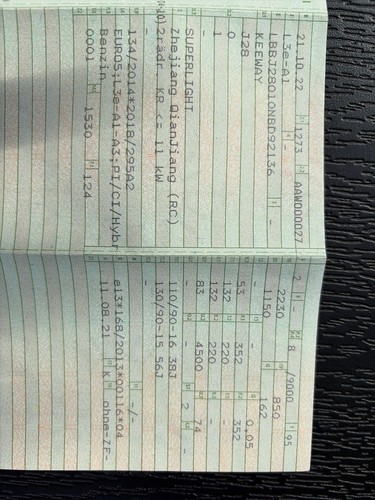 21.10.22 1273 AAW000027
L3e-A1 - 
LBBJ28010NBD92136 -
KEEWAY
J28
0
1
SUPERLIGHT
Zhejiang QianJiang (RC)
2rädr. KR <= 11 kW
-
134/2014*2018/295A2
EURO5;L3e-A1-A3;PI/CI/Hybr
Benzin
0001 1530 124
2 - 8 /9000 95
2230 850
1150 162
- - 0,05
53 352 352
132 220 -
132 220 -
83 4500 74
- 2 -
110/90-16 38J
130/90-15 56J
-
- -/-
e13*168/2013*00116*04
11.08.21 K ohne-ZF-